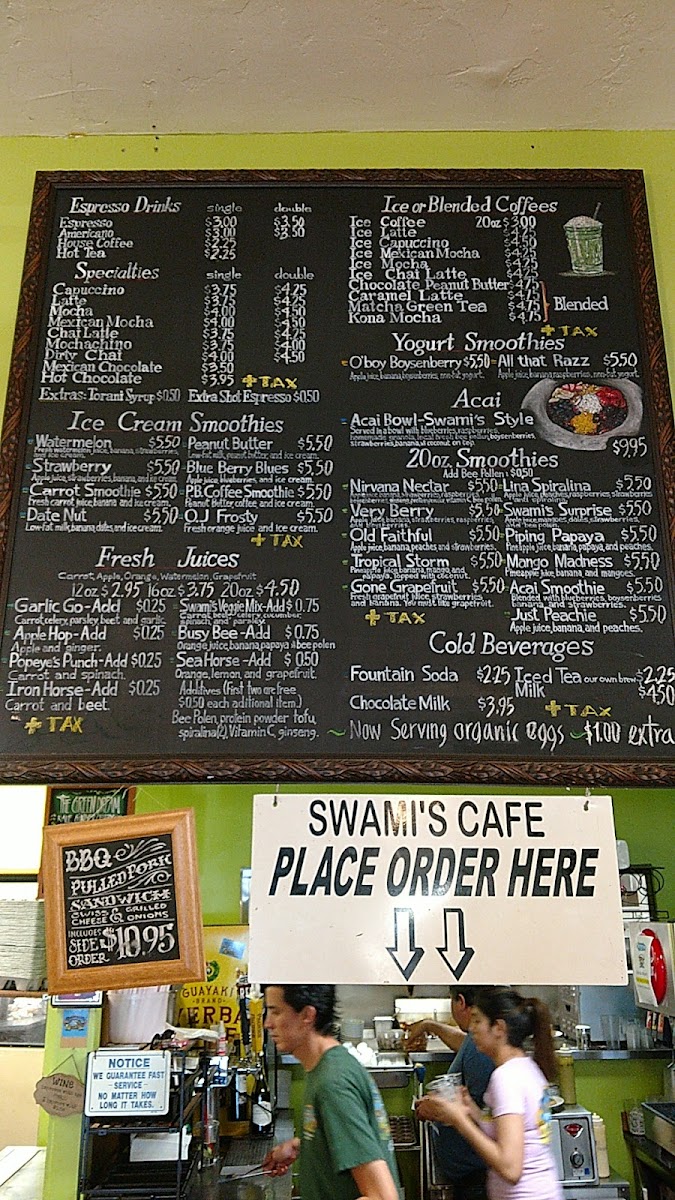 Espresso Drinks single double
Espresso $3.00 $3.50
Americano $3.00 $3.50
House Coffee $2.25
Hot Tea $2.25
Specialties single double
Capuccino $3.75 $4.25
Latte $3.75 $4.25
Mocha $4.00 $4.50
Mexican Mocha $4.00 $4.50
Chai Latte $3.75 $4.25
Mochachino $3.75
Dirty Chai $4.00 $4.50
Mexican Chocolate $3.50
Hot Chocolate $3.95 +TAX
Extras-Torani Syrup $0.50 Extra Shot Espresso $0.50
Ice Cream Smoothies
Watermelon $5.50
Fresh watermelon juice, banana, strawberries, and ice cream.
Strawberry $5.50
Apple juice, banana, strawberries, and ice cream.
Carrot Smoothie $5.50
Fresh carrot juice, banana and ice cream.
Date Nut $5.50
Low-fat milk, banana, dates, and ice cream.
Peanut Butter $5.50
Low-fat milk, peanut butter, and ice cream.
Blue Berry Blues $5.50
Apple juice, blueberries, and ice cream.
P.B. Coffee Smoothie $5.50
Peanut butter, coffee, and ice cream.
O.J Frosty $5.50
Fresh orange juice and ice cream.
+TAX
Fresh Juices
Carrot, Apple, Orange, Watermelon, Grapefruit
12oz $2.95 16oz $3.75 20oz $4.50
Garlic Go-Add $0.25
Carrot, celery, parsley, beet and garlic.
Apple Hop-Add $0.25
Apple and ginger.
Popeye's Punch-Add $0.25
Carrot and spinach.
Iron Horse-Add $0.25
Carrot and beet.
+TAX
Swami's Veggie Mix-Add $0.75
Carrot, beet, celery, cucumber, spinach, and parsley.
Busy Bee-Add $0.75
Orange juice, banana, papaya & bee polen
Sea Horse-Add $0.50
Orange, lemon, and grapefruit.
Additives (First two are free
$0.50 each aditional item.)
Bee Polen, protein powder, tofu,
spiralina(2), Vitamin C, ginseng.
Ice or Blended Coffees
Ice Coffee 20oz $3.00
Ice Latte $4.25
Ice Capuccino $4.50
Ice Mexican Mocha $4.25
Ice Mocha $4.25
Ice Chai Latte $4.25
Chocolate Peanut Butter $4.75
Caramel Latte $4.75
Matcha Green Tea $4.75
Kona Mocha $4.75
Blended
+TAX
Yogurt Smoothies
O'boy Boysenberry $5.50
Apple juice, banana, boysenberries, non-fat yogurt.
All that Razz $5.50
Apple juice, banana, raspberries, non-fat yogurt.
Acai
Acai Bowl-Swami's Style
Served in a bowl with blueberries, raspberries,
homemade granola, local fresh bee pollen, boysenberries,
strawberries, banana, & coconut on top.
$9.95
20oz Smoothies
Add Bee Polen: $0.50
Nirvana Nectar $5.50
Very Berry $5.50
Old Faithful $5.50
Apple juice, banana, peaches and strawberries.
Tropical Storm $5.50
Pineapple juice, banana, mango, and
papaya, topped with coconut.
Gone Grapefruit $5.50
Fresh grapefruit juice, strawberries,
and banana. You must like grapefruit.
+TAX
Lina Spiralina $5.50
Swami's Surprise $5.50
Piping Papaya $5.50
Pineapple juice, banana, papaya, and peaches.
Mango Madness $5.50
Pineapple juice, banana, and mangoes.
Acai Smoothie $5.50
Blended with blueberries, boysenberries,
banana, and strawberries.
Just Peachie $5.50
Apple juice, banana, and peaches.
Cold Beverages
Fountain Soda $2.25 Iced Tea our own brew $2.25
Milk $4.50
Chocolate Milk $3.95 +TAX
~ Now Serving organic eggs ~ $1.00 extra
THE GREEN DREAM
BBQ
PULLED PORK
SANDWICH
SWISS & GRILLED
CHEESE ONIONS
INCLUDES
SIDE $10.95
ORDER
SWAMI'S CAFE
PLACE ORDER HERE
GUAYAKI
BRAND
YERBA
NOTICE
WE GUARANTEE FAST
- SERVICE -
NO MATTER HOW
LONG IT TAKES.
WINE